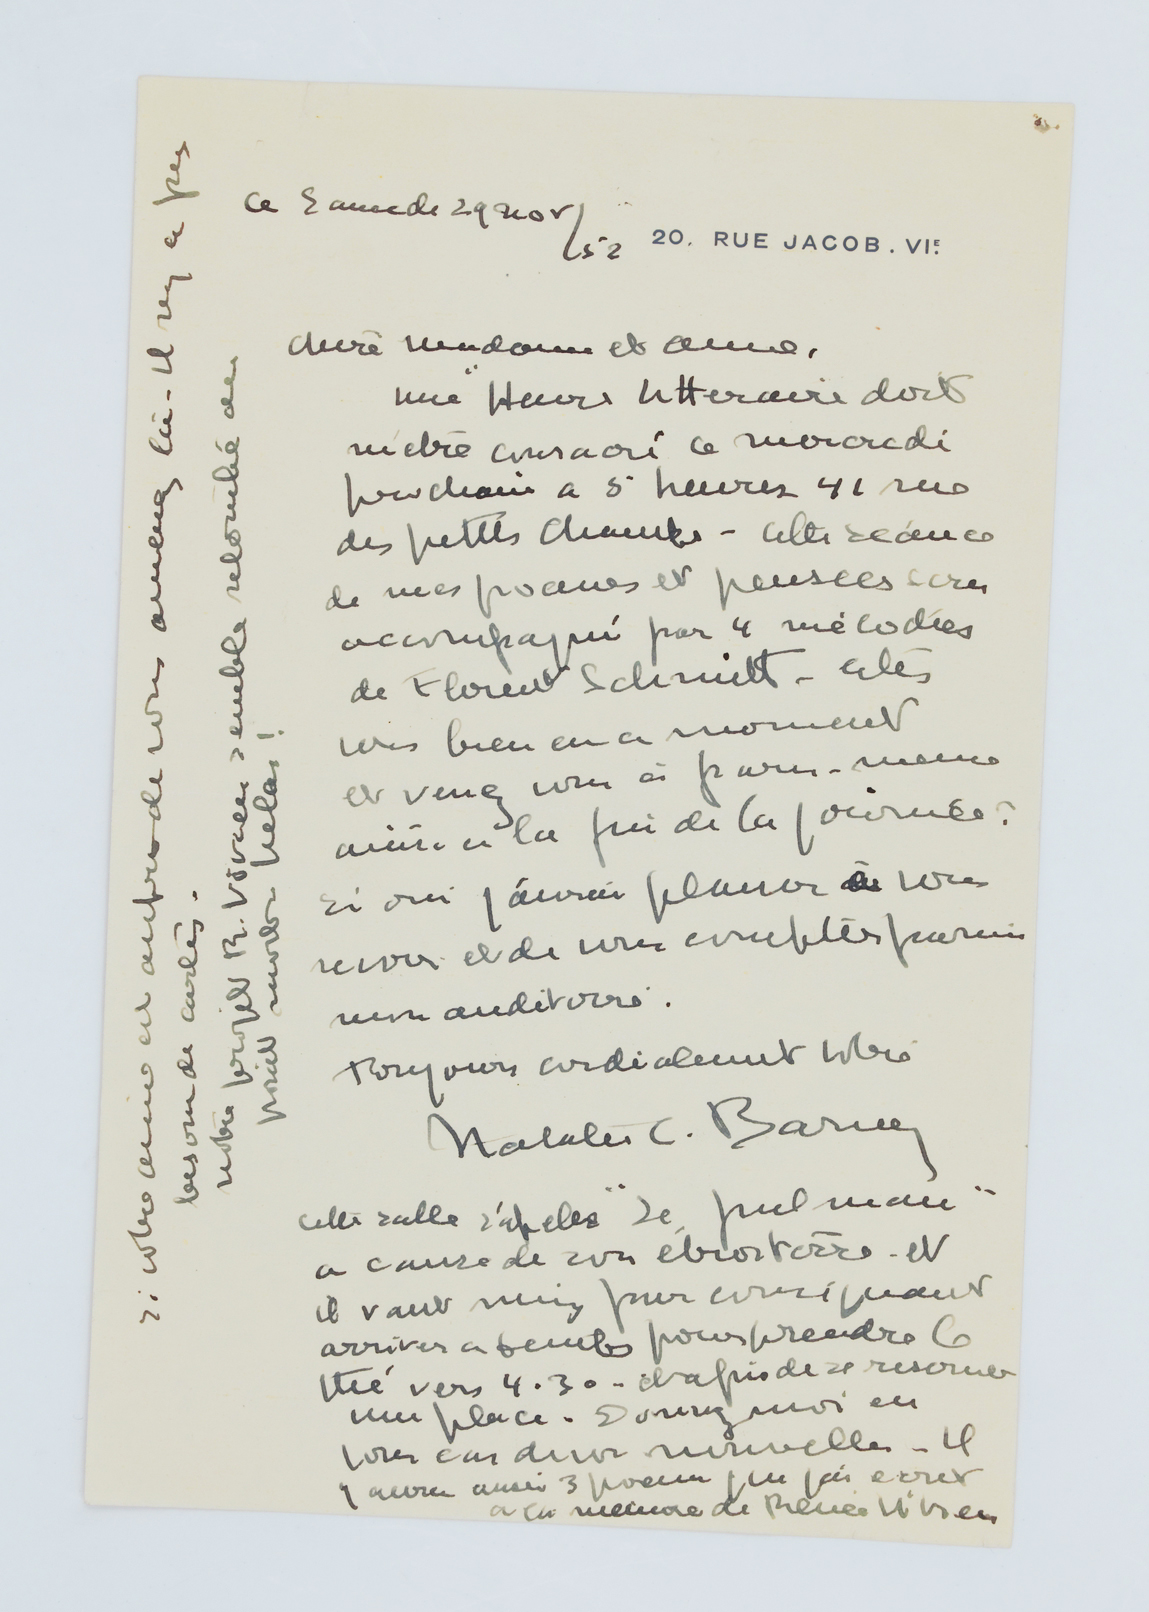 ce Samedi 29 nov/52
20, RUE JACOB. VIE.
chere madame et amie,
une "Heure litteraire doit
m'etre consacré ce mercredi
prochain a 5 heures 41 rue
des petits Champs - cette séance
de mes poemes et pensées sera
accompagné par 4 mélodies
de Florent Schmitt - etes
vous bien en ce moment
et venez vous à paris - meme
ainsi a la fin de la journée?
si oui j'aurai plaisir à vous
revoir et de vous compter parmi
mon auditoire.
Toujours cordialement votre
Natalie C. Barney
cette salle s'apelle "Le pulman"
a cause de son étroitesse - et
il vaut mieux par consequant
arriver a temps pour prendre le
thé vers 4.30 - afin de se reserver
une place. Donnez moi en
tous cas de vos nouvelles - Il
y aura aussi 3 poemes que j'ai ecrit
a la memoire de Renée Vivien
si votre amie est autour de vous amenez la - Il n'y a pas
besoin de cartes.
notre projet R. Vivien semble retombé au
point mort helas!